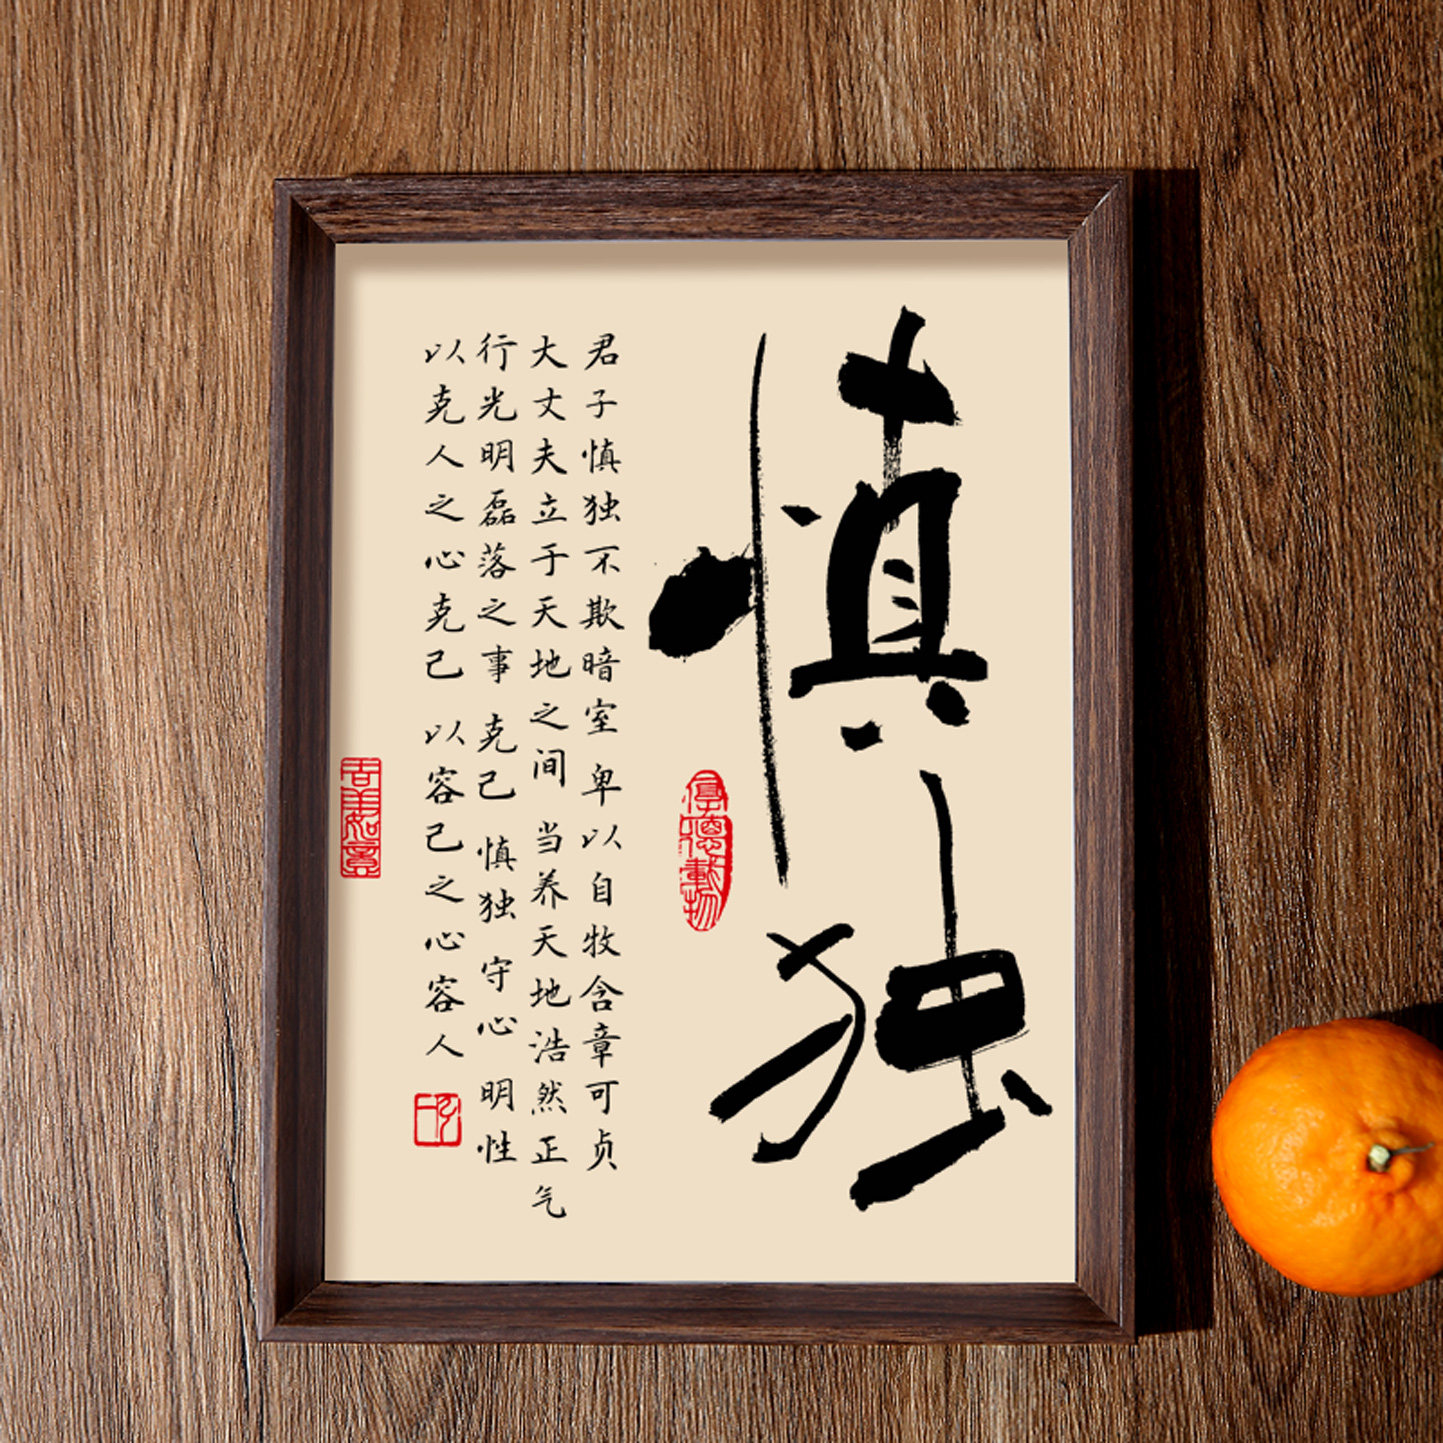 慎独
厚德載物
君子慎独不欺暗室 卑以自牧含章可贞
大丈夫立于天地之间 当养天地浩然正气
行光明磊落之事 克己 慎独 守心 明性
以克人之心克己 以容己之心容人